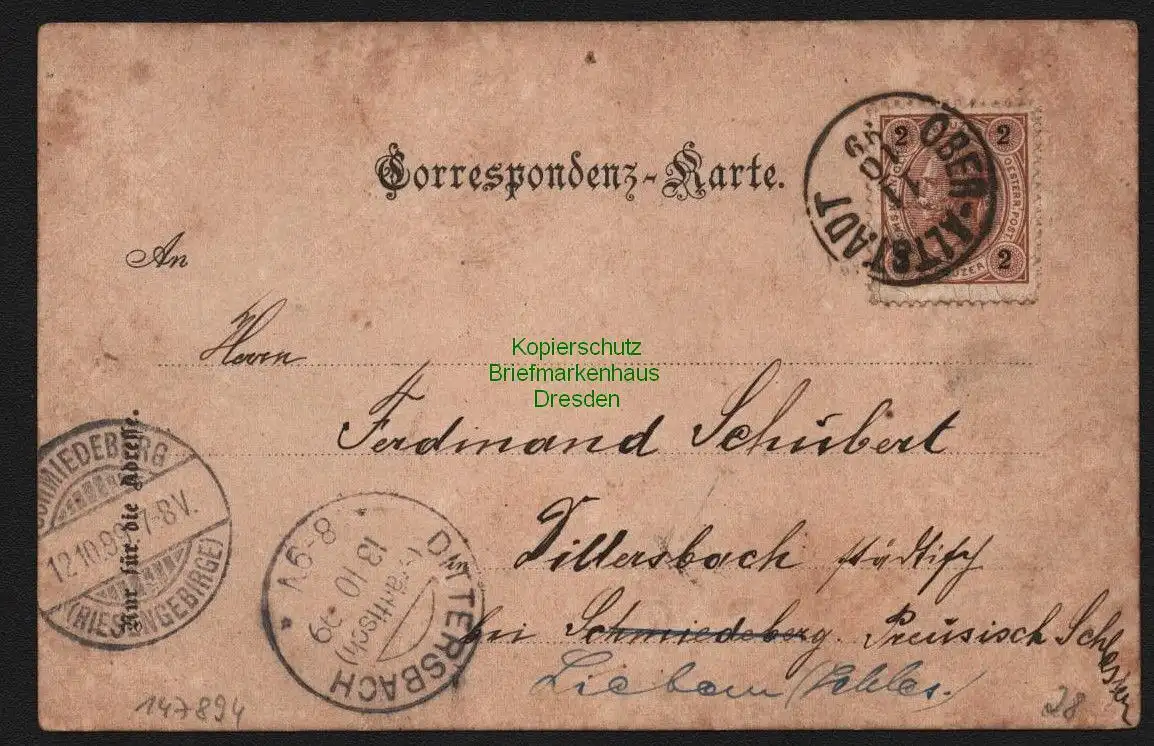 Correspondenz-Karte.
OBER-ALTSTADT
11
10
99
2 2
OESTERR. POST
2
An
Herrn
Kopierschutz
Briefmarkenhaus
Dresden
Ferdinand Schubert
Dittersbach städtisch
bei Schmiedeberg. Preusisch Schlesien
Liebau (Schles.)
Nur für die Adresse.
SCHMIEDEBERG
12.10.99 7-8V.
(RIESENGEBIRGE)
DITTERSBACH
(städtisch)
13 10 99
8-9V
147894
28